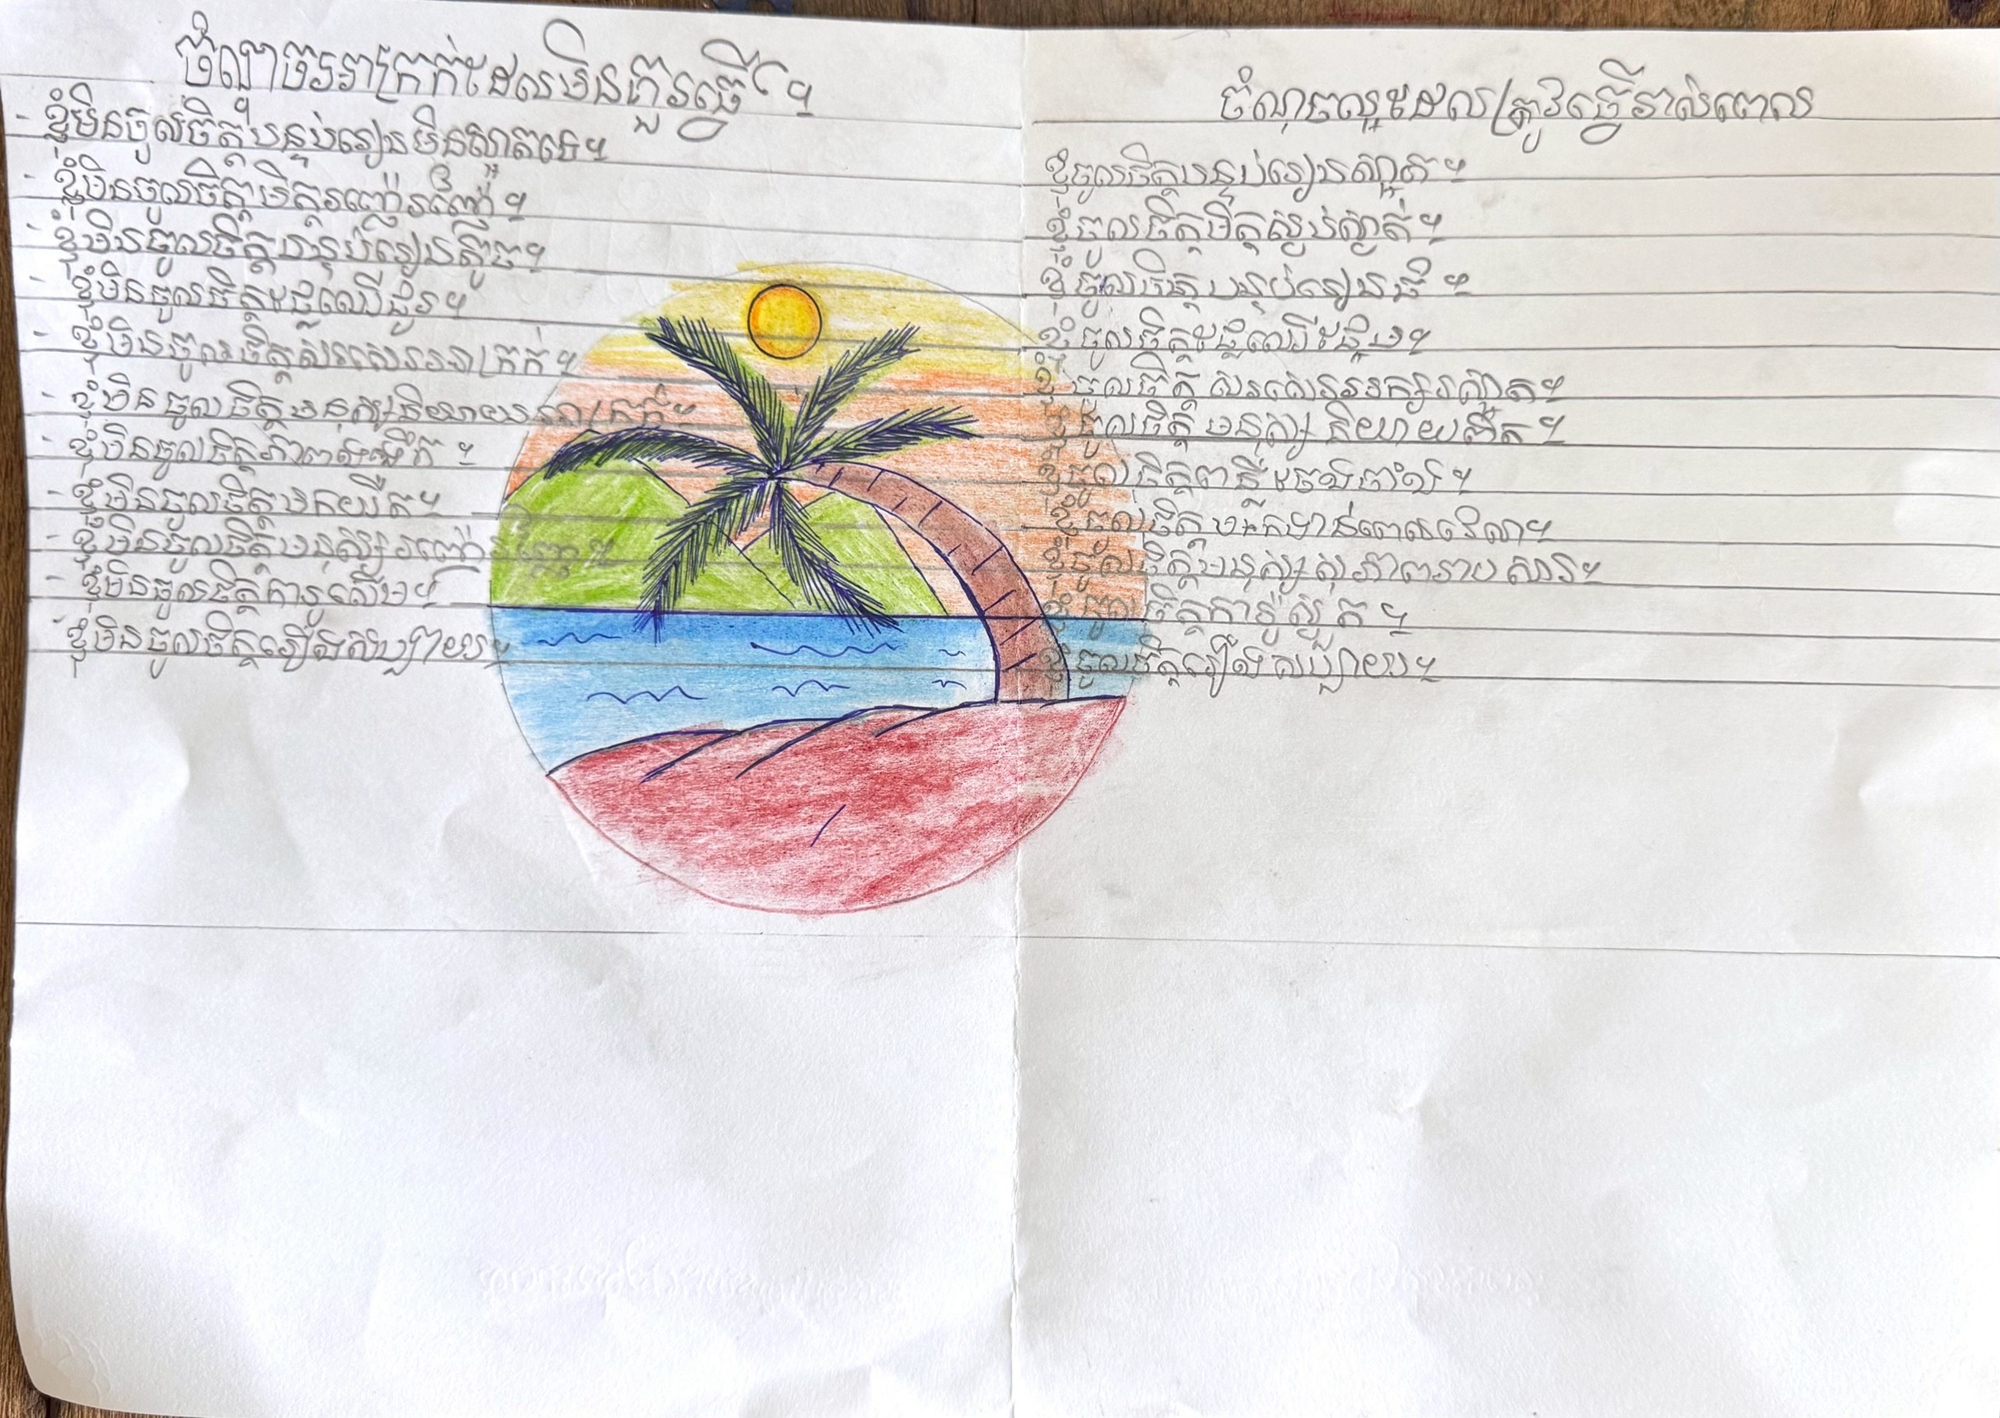 ចំណុចអាក្រក់ដែលមិនគួរធ្វើ។
- ខ្ញុំមិនចូលចិត្តបន្ទប់រៀនមិនស្អាតទេ។
- ខ្ញុំមិនចូលចិត្តមិត្តរញ៉េរញ៉ៃ។
- ខ្ញុំមិនចូលចិត្តបន្ទប់រៀនតូច។
- ខ្ញុំមិនចូលចិត្តផ្លែឈើជូរ។
- ខ្ញុំមិនចូលចិត្តសរសេរអាក្រក់។
- ខ្ញុំមិនចូលចិត្តមនុស្សនិយាយអាក្រក់។
- ខ្ញុំមិនចូលចិត្តភាពងងឹត។
- ខ្ញុំមិនចូលចិត្តមកយឺត។
- ខ្ញុំមិនចូលចិត្តមនុស្សរញ៉េរញ៉ៃ។
- ខ្ញុំមិនចូលចិត្តការ៉ូសើម។
- ខ្ញុំមិនចូលចិត្តរឿងសប្បាយ។
ចំណុចល្អដែលត្រូវធ្វើរាល់ពេល
ខ្ញុំចូលចិត្តបន្ទប់រៀនស្អាត។
ខ្ញុំចូលចិត្តមិត្តស្ងប់ស្ងាត់។
ខ្ញុំចូលចិត្តបន្ទប់រៀនធំ។
ខ្ញុំចូលចិត្តផ្លែឈើផ្អែម។
ខ្ញុំចូលចិត្តសរសេរអក្សរស្អាត។
ខ្ញុំចូលចិត្តមនុស្សនិយាយពិត។
ខ្ញុំចូលចិត្តពន្លឺចែងចាំង។
ខ្ញុំចូលចិត្តមកទាន់ពេលវេលា។
ខ្ញុំចូលចិត្តមនុស្សសុភាពរាបសារ។
ខ្ញុំចូលចិត្តការ៉ូស្ងួត។
ខ្ញុំចូលចិត្តរឿងសប្បាយ។